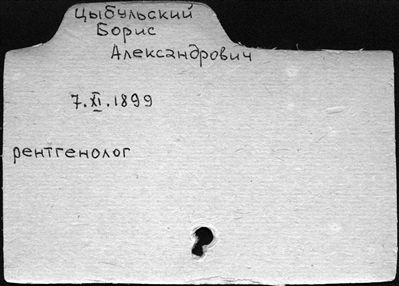 Цыбульский
Борис
Александрович
7.XI.1899
рентгенолог